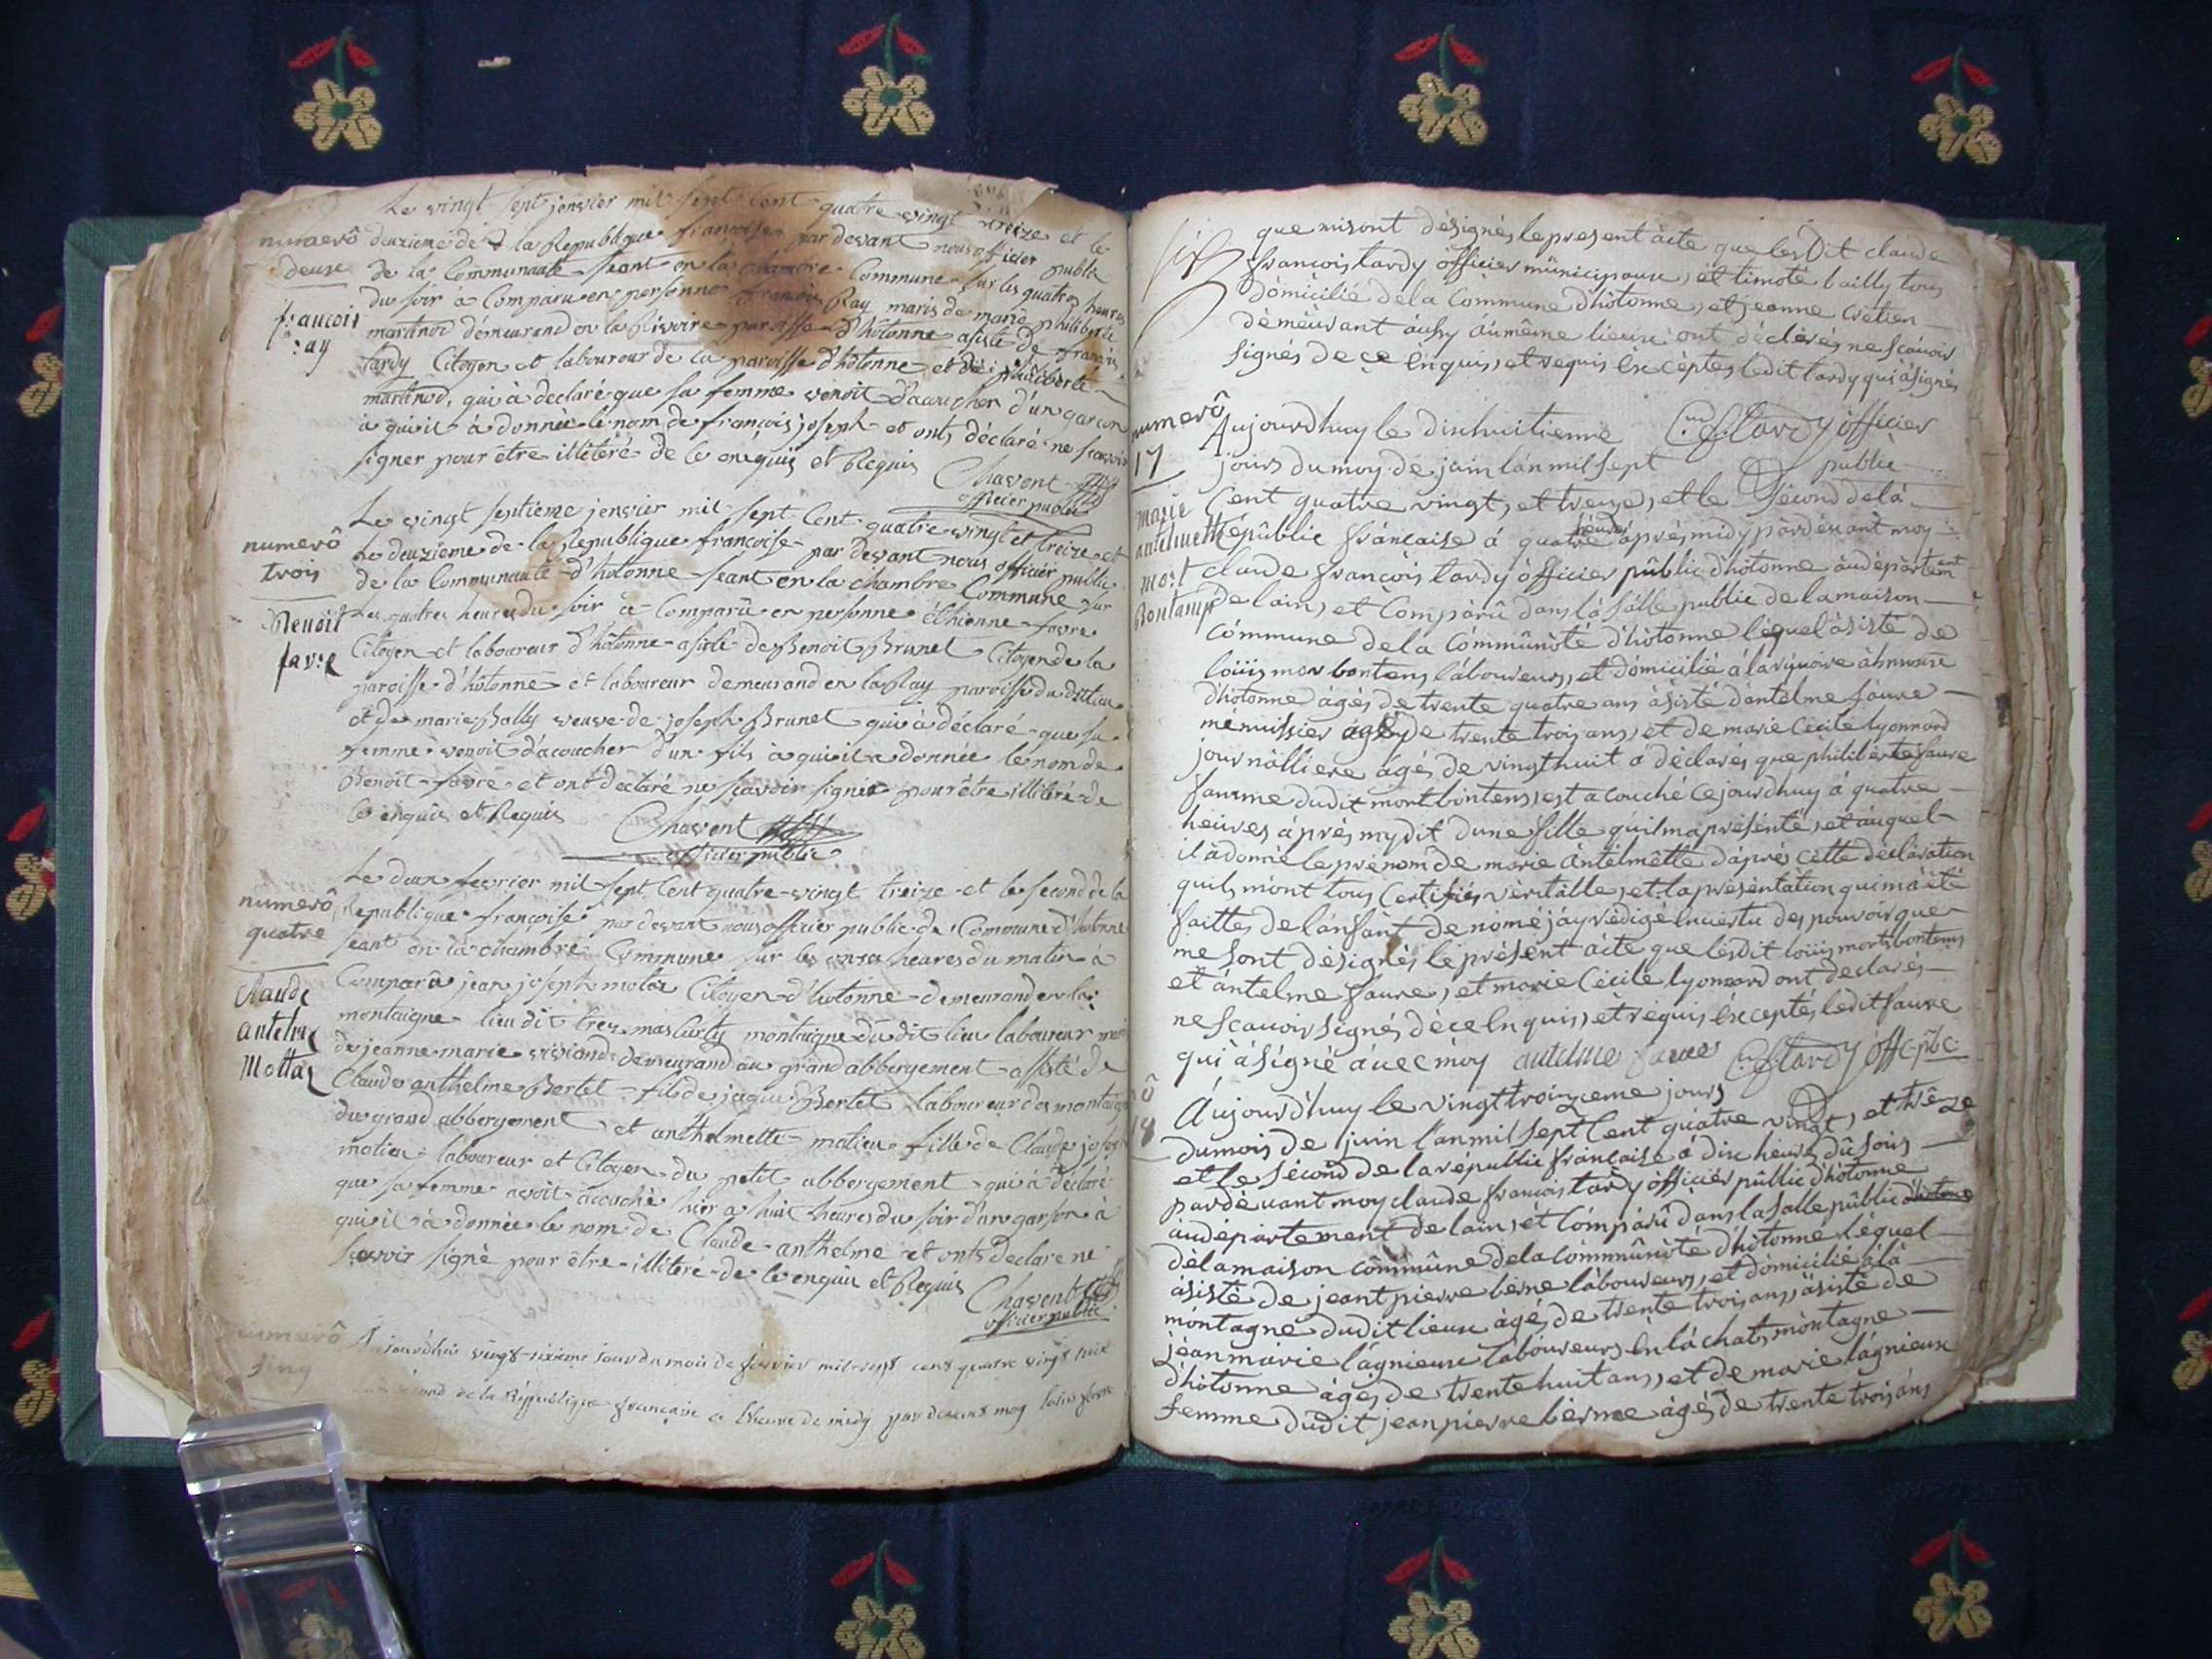 Le vingt sept jenvier mil sept Cent quatre vingt treize et le
numerô deuzieme de la Republique francoise par devant nous officier public
deuxe de la Communauté seant en la chambre Commune sur les quatres heures
du soir a Comparu en personne francois Ray maris de marie philiberte
francois martinod demeurand en la Rivoire paroisse d'hôtonne asisté de francois
ray tardy Citoyen et laboureur de la paroisse d'hôtonne et de philiberte
martinod, qui à declaré que sa femme venoit d'acoucher d'un garcon
à qui il à donnée le nom de francois joseph et onts déclaré ne scavoir
signer pour être illitéré de ce enquis et Requis Chavent
officier public
Le vingt septieme jenvier mil sept Cent quatre vingt et treize et
numerô Le deuzieme de la Republique francoise par devant nous officier public
trois de la Communauté d'hotonne seant en la chambre Commune sur
Les quatres heures du soir à Comparû en personne êthienne favre
Benoit Citoyen et laboureur d'hôtonne asisté de Benoit Brunet Citoyen de la
favre paroisse d'hôtonne et laboureur demeurand en la Ray paroisse du dit lieu
et de marie Bally veuve de joseph Brunet qui à déclaré que sa
femme venoit d'acoucher d'un fils à qui il a donnée le nom de
Benoit favre et ont declaré ne scavoir signer pour être illitéré de
Ce enquis et Requis Chavent
officier public
Le deux fevrier mil sept Cent quatre vingt treize et le second de la
numerô Republique françoise par devant nous officier public de Commune d'hotonne
quatre seant en la chambre Commune sur les onze heures du matin à
Comparû jean joseph motaz Citoyen d'hotonne demeurand en la
Claude montaigne lieu dit montaigne du dit lieu laboureur
antelme de jeanne marie demeurand au grand abbergement assisté de
Mottaz Claude anthelme Bertet fils de jaque Bertet laboureur des montaigne
du grand abbergement et anthelmette matieu fille de Claude joseph
matieu laboureur et Citoyen du petit abbergement qui à declaré
que sa femme avoit acouchê hier a huit heures du soir d'un garson à
qui il à donnée le nom de Claude anthelme et onts declare ne
scavoir signé pour être illitéré de ce enquis et Requis Chavent
officier public
numerô Aujourdhui vingt sixieme jour du mois de fevrier mil sept cent quatre vingt
sinq second de la République francaise à l'heure de midy par devant moy
que misont dèsignés le present àcte que les Dit claude
francois tardy öfficier mûnicipaux, et timoté bailly tous
dómicilié de la Commune d'hótonne, et jeanne cretien
dèmeurant áussy áu même lieux ont dèclarés ne scâuoir
signés de ce Enquis, et requis Excéptes ledit tardy qui àsignés
numerô Aujourdhuy le dixhuitienne C. f. tardy öfficier
17 jours du moy de juin lán mil sept public
Cent quatre vingt, et treize, et le sécond de lá
marie République fráncaise á quatre heures áprés midy párdéuánt moy
antelmette claude francois tardy öfficier pûblic d'hótonne áudépártement
mort de lain, et Compárû dans lá sálle public de la maison
Bontamps cómmune de la Cómmûnôté d'hótonne léquel àsisté de
loüis mor bontens láboureurs, et dómicilié á la
d'hótonne ágés de trente quatre ans àsisté dantelme fáure
menuisier ágés de trente trois ans, et de marie Cécile lyonnard
journálliere ágés de vingthuit a dèclarés que philiberte fáure
famme dudit mort bontens, est acouché cejourdhuy á quatre
heures áprés mydit dune fille quil ma présenté, et áuquel
il à donné le prénom de marie ántelmêtte dáprés cétte déclàration
quils mont tous Certifiés vèritable, et la présèntàtion qui má été
faittes de lánfánt de nomé jáy rèdigé Enuertu des pouvoir que
me sont dèsignés le présent àcte que lésdit loüis mort bontems
et ántelme faure, et marie Cécile lyonnard ont declarés
ne scauoir signés dèce Enquis, et réquis Excéptés ledit faure
qui àsigné áuec móy antelme faure C. f. tardy öff. pbc
nô Aujourdhuy le vingt troizieme jours
18 du mois de juin l'an mil sept Cent quátre vingt, et trêze
et le sécond de la républic francaise á dix heures dû soirs
pardéuant moy claude francois tardy öfficier pûblic d'hótonne
áudépártement de lain, ét Cómpárû dans la Salle pûblic d'hotonne
dé la maison cómmûne de la cómmûnôté d'hótonne léquel
ásisté de jeant pierre berne lábourerurs, et dómicilié á là
móntagne dudit lieux ágés de trente trois ans, àsisté de
jéan márie lágnieux lábourerurs En lá chat, móntagne
d'hótonne ágés de trente huit ans, et de marie lágnieux
femme dudit jean pierre bérne ágés de trente trois áns